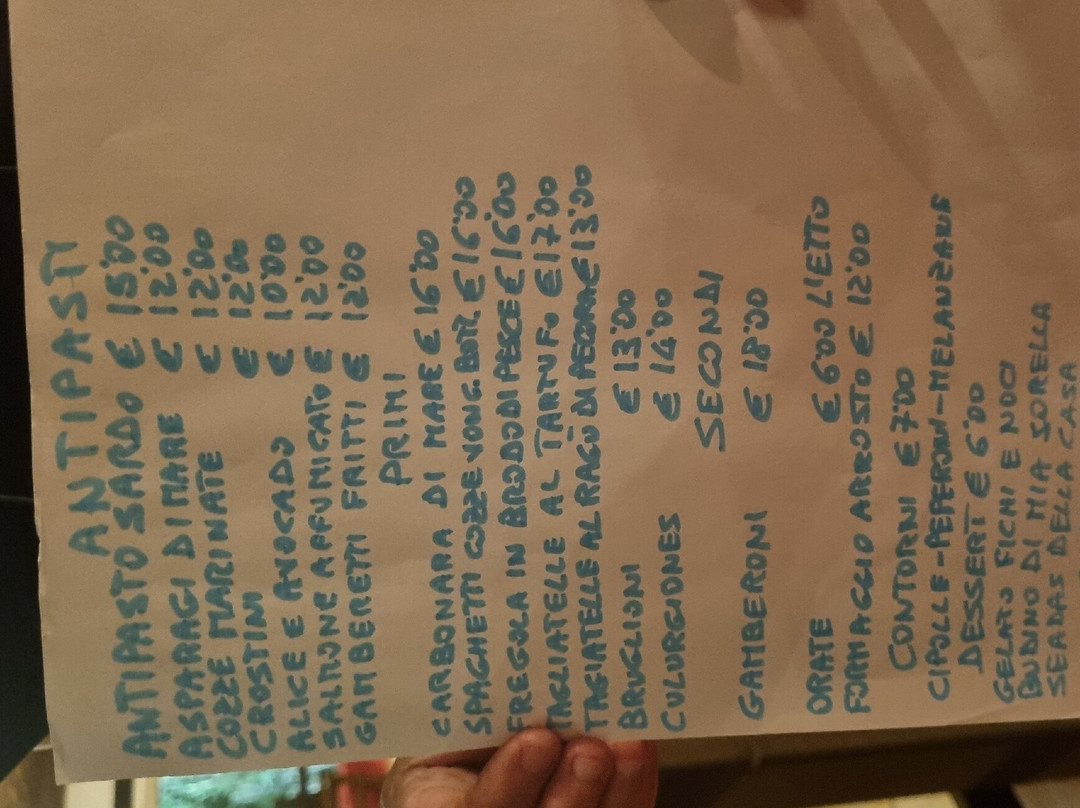 ANTIPASTI
ANTIPASTO SARDO € 15'00
ASPARAGI DI MARE € 12'00
COZZE MARINATE € 12'00
CROSTINI € 12'00
ALICE E AVOCADO € 10'00
SALMONE AFFUMICATO € 12'00
GAMBERETTI FRITTI € 12'00
PRIMI
CARBONARA DI MARE € 16'00
SPAGHETTI COZZE VONG. BOTT. € 16'00
FREGOLA IN BRODO DI PESCE € 16'00
TAGLIATELLE AL TARTUFO € 17'00
TAGLIATELLE AL RAGÙ DI PECORA € 13'00
BRUGLIONI € 13'00
CULURGIONES € 14'00
SECONDI
GAMBERONI € 18'00
ORATE € 6'00 L'ETTO
FORMAGGIO ARROSTO € 12'00
CONTORNI € 7'00
CIPOLLE-PEPERONI-MELANZANE
DESSERT € 6'00
GELATO FICHI E NOCI
BUDINO DI MIA SORELLA
SEADAS DELLA CASA